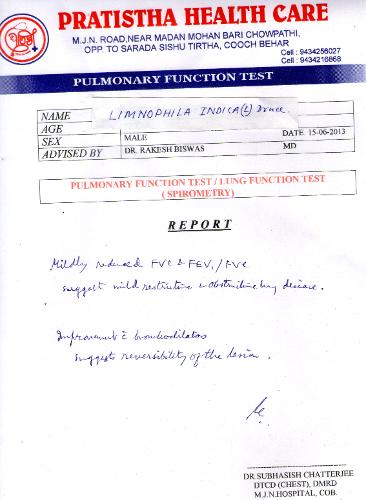 PRATISTHA HEALTH CARE
M.J.N. ROAD,NEAR MADAN MOHAN BARI CHOWPATHI,
OPP. TO SARADA SISHU TIRTHA, COOCH BEHAR
Cell : 9434256027
Cell : 9434216868
PULMONARY FUNCTION TEST
NAME LIMNOPHILA INDICA (L) Druce.
AGE
SEX MALE DATE 15-06-2013
ADVISED BY DR. RAKESH BISWAS MD
PULMONARY FUNCTION TEST / LUNG FUNCTION TEST
( SPIROMETRY)
REPORT
Mildly reduced FVC & FEV1/FVC
suggest mild restrictive & obstructive lung disease.
Improvement c̄ bronchodilators
suggests reversibility of the lesion.
DR SUBHASISH CHATTERJEE
DTCD (CHEST), DMRD
M.J.N.HOSPITAL, COB.